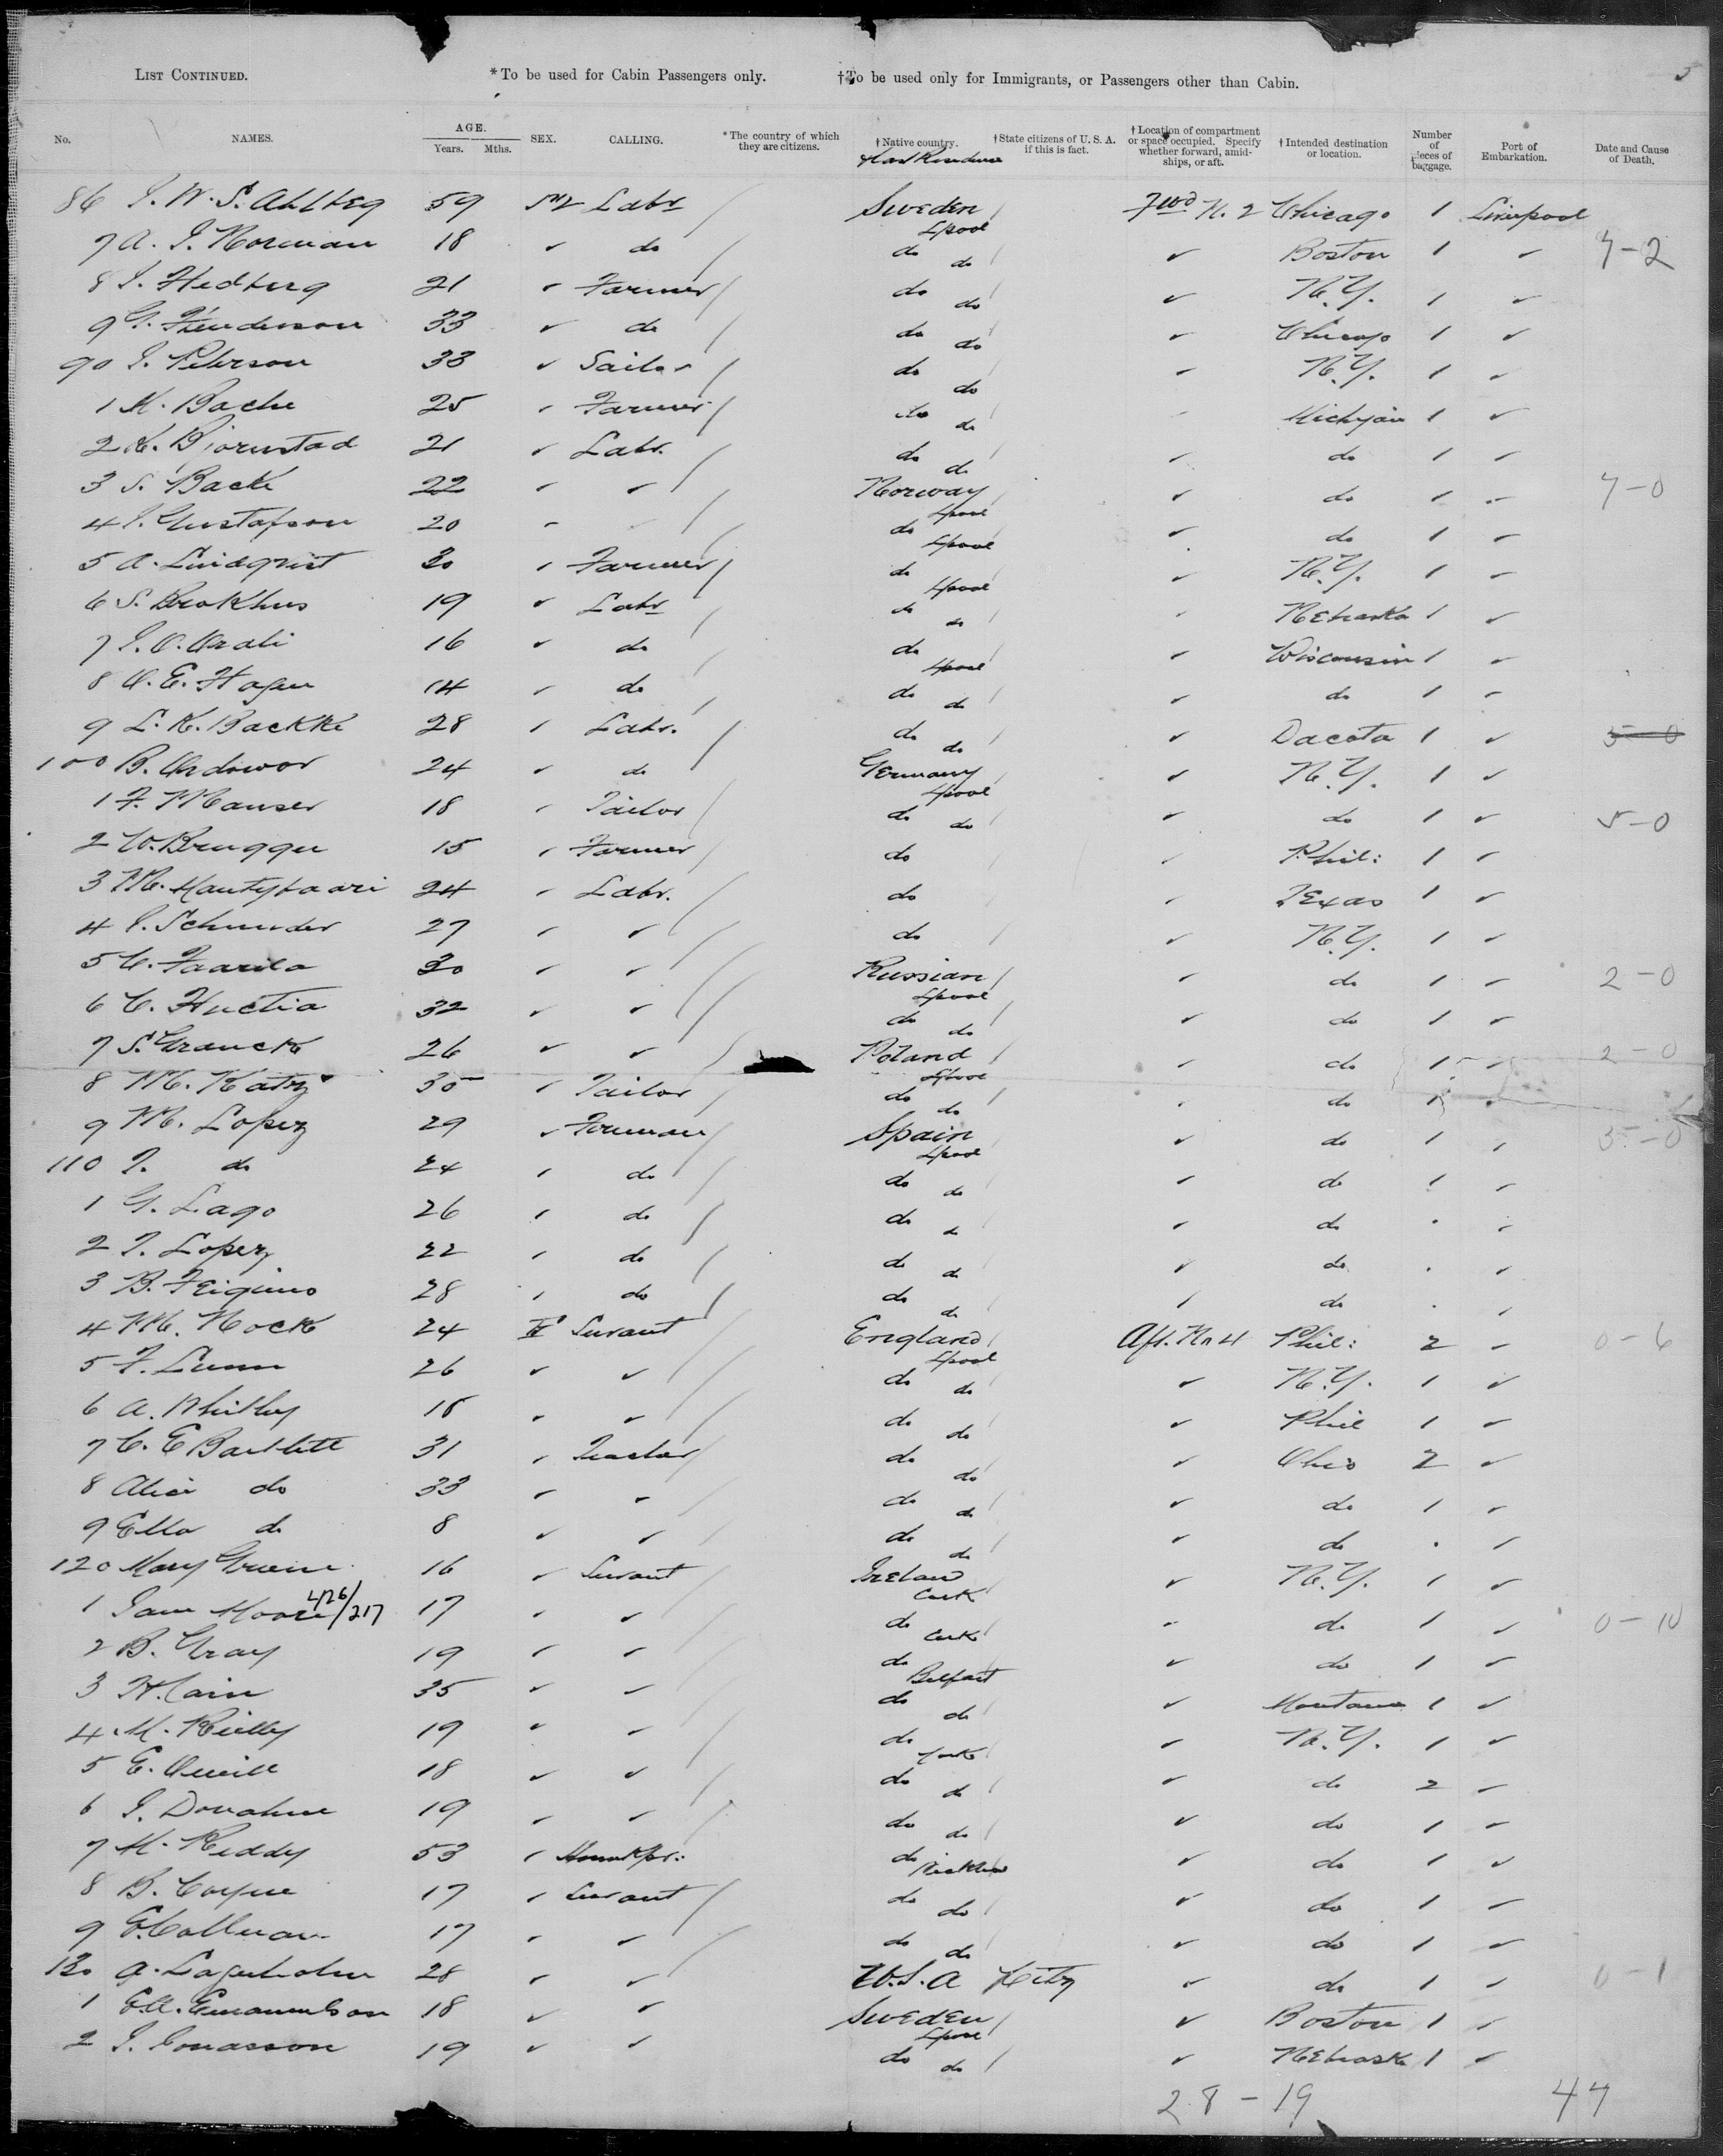 5
LIST CONTINUED. *To be used for Cabin Passengers only. †To be used only for Immigrants, or Passengers other than Cabin.
No. NAMES. AGE. Years. Mths. SEX. CALLING. *The country of which they are citizens. †Native country. †State citizens of U. S. A. if this is fact. †Location of compartment or space occupied. Specify whether forward, amidships, or aft. †Intended destination or location. Number of pieces of baggage. Port of Embarkation. Date and Cause of Death.
86 J. W. S. Ahlberg 59 M Labr Sweden Lpool Fwd N. 2 Chicago 1 Liverpool
7 A. J. Norman 18 ✓ do do do ✓ Boston 1 ✓ 7-2
8 J. Hedberg 21 ✓ Farmer do do ✓ N.Y. 1 ✓
9 G. 33 ✓ do do do ✓ Chicago 1 ✓
90 J. Peterson 33 ✓ Sailor do do ✓ N.Y. 1 ✓
1 M. Bache 25 ✓ Farmer do do Michigan 1 ✓
2 K. Bjornstad 21 ✓ Labr. do do ✓ do 1 ✓
3 S. Back 22 ✓ ✓ Norway Lpool ✓ do 1 ✓ 7-0
4 J. Gustafson 20 do Lpool ✓ do 1 ✓
5 A. Lindqvist 30 ✓ Farmer do Lpool ✓ N.Y. 1 ✓
6 S. Brokhus 19 ✓ Labr do do ✓ Nebraska 1 ✓
7 J. O. 16 ✓ do do Lpool ✓ Wisconsin 1 ✓
8 O. E. Hagen 14 ✓ do do do ✓ do 1 ✓
9 L. K. Backke 28 ✓ Labr. do do ✓ Dacota 1 ✓ 5-0
100 B. 24 ✓ do Germany Lpool ✓ N.Y. 1 ✓
1 F. Manser 18 ✓ Tailor do do ✓ do 1 ✓ 5-0
2 W. Brugger 15 ✓ Farmer do ✓ Phil: 1 ✓
3 M. 24 ✓ Labr. do ✓ Texas 1 ✓
4 J. Schnuder 27 ✓ ✓ do ✓ N.Y. 1 ✓
5 C. Faarila 30 ✓ ✓ Russian Lpool ✓ do 1 ✓ 2-0
6 C. Huctia 32 ✓ ✓ do do ✓ do 1 ✓
7 S. Granck 26 ✓ ✓ Poland Lpool ✓ do 1 ✓ 2-0
8 M. Katz 35 ✓ Tailor do do ✓ do 1 ✓
9 M. Lopez 29 ✓ Spain Lpool ✓ do 1 ✓ 5-0
110 J. do 24 ✓ do do do ✓ do 1 ✓
1 G. Lago 26 ✓ do do do ✓ do ✓
2 J. Lopez 22 ✓ do do do ✓ do ✓
3 B. 28 ✓ do do do ✓ do ✓
4 M. Mock 24 F Servant England Lpool Aft. No 4 Phil: 2 ✓ 0-6
5 F. Lunn 26 ✓ ✓ do do ✓ N.Y. 1 ✓
6 A. Whitley 18 ✓ ✓ do do ✓ Phil 1 ✓
7 C. E Bartlett 31 ✓ Teacher do do ✓ Ohio 2 ✓
8 Alice do 33 ✓ ✓ do do ✓ do 1 ✓
9 Ella do 8 ✓ ✓ do do ✓ do ✓
120 Mary Greene 16 ✓ Servant Ireland Cork ✓ N.Y. 1 ✓
1 Jane Moore 426/217 17 ✓ ✓ do Cork ✓ do 1 ✓ 0-10
2 B. Gray 19 ✓ ✓ do Belfast ✓ do 1 ✓
3 H. Cain 35 ✓ ✓ do do ✓ Montana 1 ✓
4 M. Reilly 19 ✓ ✓ do Cork ✓ N.Y. 1 ✓
5 E. Oneill 18 ✓ ✓ do do ✓ do 2 ✓
6 J. Donahue 19 ✓ ✓ do do ✓ do 1 ✓
7 M. Reddy 53 ✓ Housekpr. do ✓ do 1 ✓
8 B. Coyne 17 ✓ Servant do do ✓ do 1 ✓
9 E. Collman 17 ✓ ✓ do do ✓ do 1 ✓
130 A. Lagerholm 28 ✓ ✓ U.S.A City ✓ do 1 ✓ 0-1
1 E. A. Emanuelson 18 ✓ ✓ Sweden Lpool ✓ Boston 1 ✓
2 J. Jonasson 19 ✓ ✓ do do ✓ Nebraska 1 ✓
28-19 47